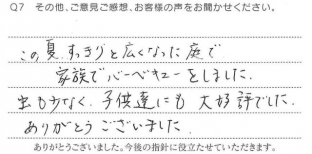 Q7 その他、ご意見ご感想、お客様の声をお聞かせください。
この夏、すっきりと広くなった庭で
家族でバーベキューをしました。
虫も少なく、子供達にも大好評でした。
ありがとうございました。
ありがとうございました。今後の指針に役立たせていただきます。